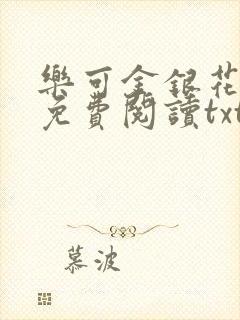 樂可金銀花
免費閱讀txt
慕波